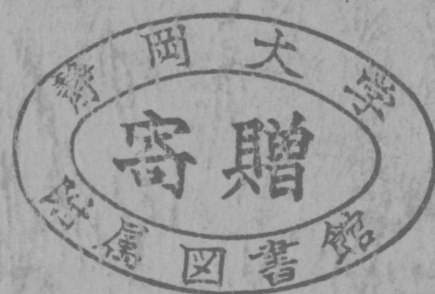 静岡大学
寄贈
附属図書館